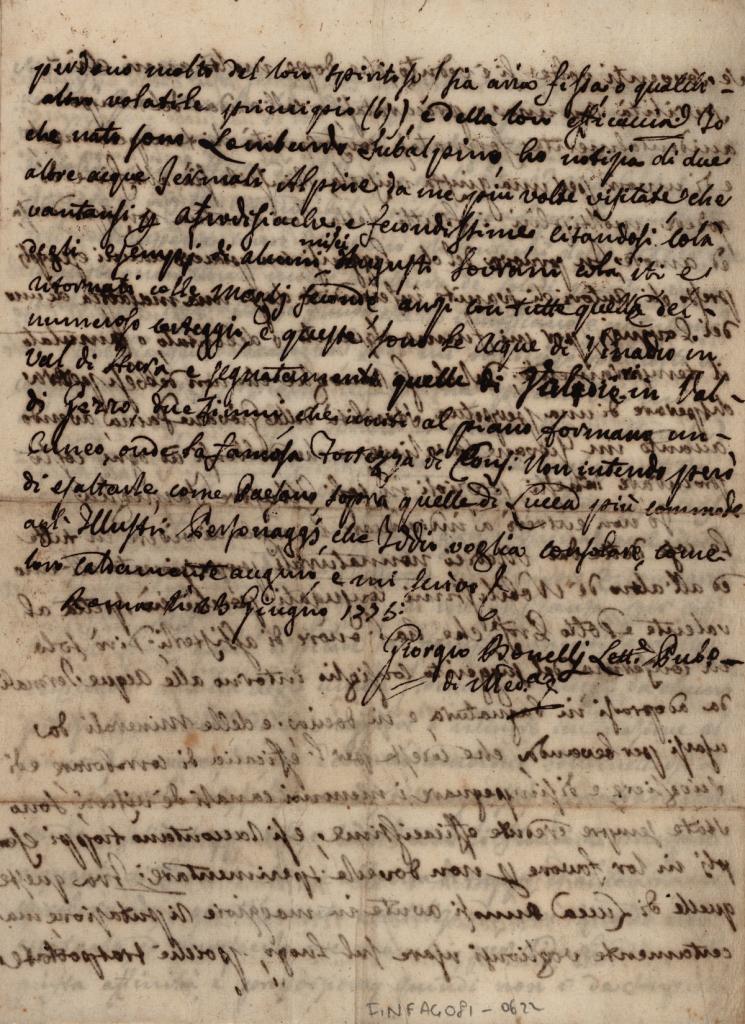 perdono molto del loro spiritoso (sia aria fissa, o qualch'-
altro volatile principio (b)) e della loro efficacia. Io
che nato sono Lombardo Subalpino, ho notizia di due
altre acque Termali Alpine da me più volte visitate che
vantansi p afrodisiache, e fecondissime, citandosi colà
degli esempj di alcuni Augusti Sovrani colà iti e
ritornati colle Mogli feconde, anzi con tutte quelle dei
numerosi corteggi, e queste sono le Acque di Vinadio in
Val di Stura e segnatamente quelle di Valdieri in Val-
di Gezzo, due fiumi che uniti al piano formano un-
Cuneo, onde la famosa Fortezza di Coni. Non intendo però
di esaltarle, come Paesano, sopra quelle di Lucca più commode
agl' Illustri Personaggi, che Iddio voglia consolare, come
loro caldamente auguro, e mi scrivo
Roma li 23 Giugno 1795.
Giorgio Bonelli Lett.e Pubb-
di Med.a
FINFAG081-0622